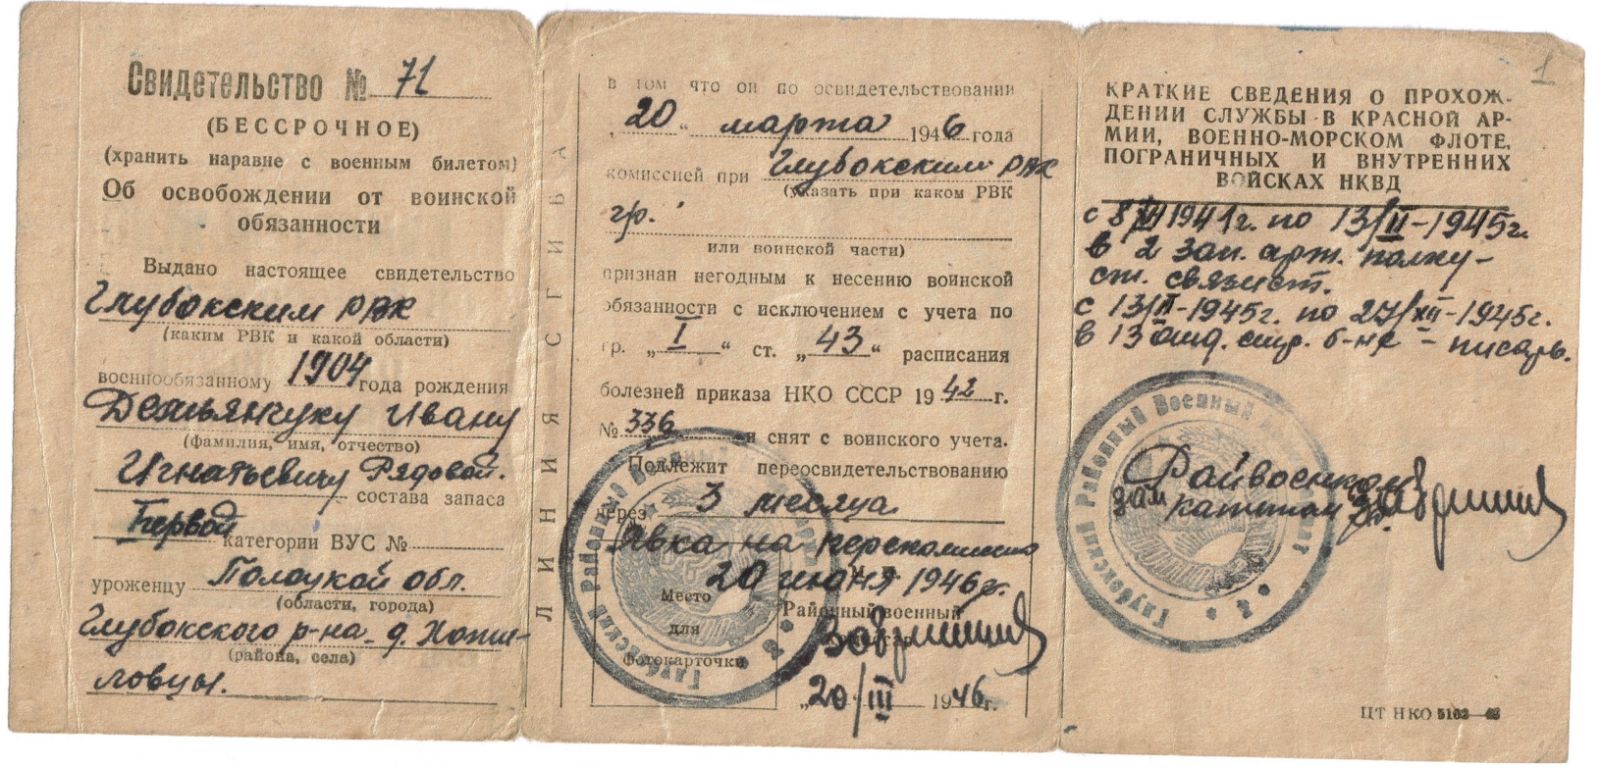 Свидетельство № 71
(БЕССРОЧНОЕ)
(хранить наравне с военным билетом)
Об освобождении от воинской
обязанности
Выдано настоящее свидетельство
Глубокским РВК
(каким РВК и какой области)
военнообязанному 1904 года рождения
Демьянчуку Ивану
(фамилия, имя, отчество)
Игнатьевичу Рядовой.
состава запаса
Первой категории ВУС №
уроженцу Полоцкой обл.
(области, города)
Глубокского р-на д.
(района, села)
ловцы.
ЛИНИЯ СГИБА
в том что он по освидетельствовании
„20“ марта 1946 года
комиссией при Глубокским РВК
(указать при каком РВК
гр.
или воинской части)
признан негодным к несению воинской
обязанности с исключением с учета по
гр. „I“ ст. „43“ расписания
болезней приказа НКО СССР 1942 г.
№ 336 и снят с воинского учета.
Подлежит переосвидетельствованию
через 3 месяца
Явка на перекомиссию
20 июня 1946 г.
Место
для
фотокарточки
Районный военный
„20/III 1946г.
1
КРАТКИЕ СВЕДЕНИЯ О ПРОХОЖ-
ДЕНИИ СЛУЖБЫ В КРАСНОЙ АР-
МИИ, ВОЕННО-МОРСКОМ ФЛОТЕ,
ПОГРАНИЧНЫХ И ВНУТРЕННИХ
ВОЙСКАХ НКВД
с 8/ 1941г. по 13/II-1945г.
в 2 зап. арт. полку-
ст. связист.
с 13/II-1945г. по 27/XII-1945г.
в 13 отд. стр. б-не - писарь.
Райвоенком
зам капитан
Районный Военный
ЦТ НКО